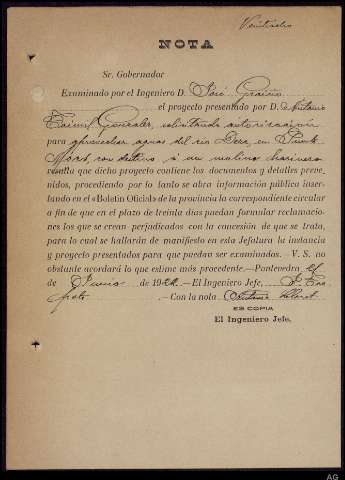 Veintiocho
NOTA
Sr. Gobernador
Examinado por el Ingeniero D. José Graiño
el proyecto presentado por D. Antonio
Gonzalez, solicitando autorización
para aprovechar aguas del río Deza, en Puente
con destino a un molino harinero
resulta que dicho proyecto contiene los documentos y detalles preve-
nidos, procediendo por lo tanto se abra información pública inser-
tando en el «Boletín Oficial» de la provincia la correspondiente circular
a fin de que en el plazo de treinta días puedan formular reclamacio-
nes los que se crean perjudicados con la concesión de que se trata,
para lo cual se hallarán de manifiesto en esta Jefatura la instancia
y proyecto presentados para que puedan ser examinados. — V. S. no
obstante acordará lo que estime más procedente. — Pontevedra
de Junio de 192 — El Ingeniero Jefe,
— Con la nota
ES COPIA
El Ingeniero Jefe,
AG